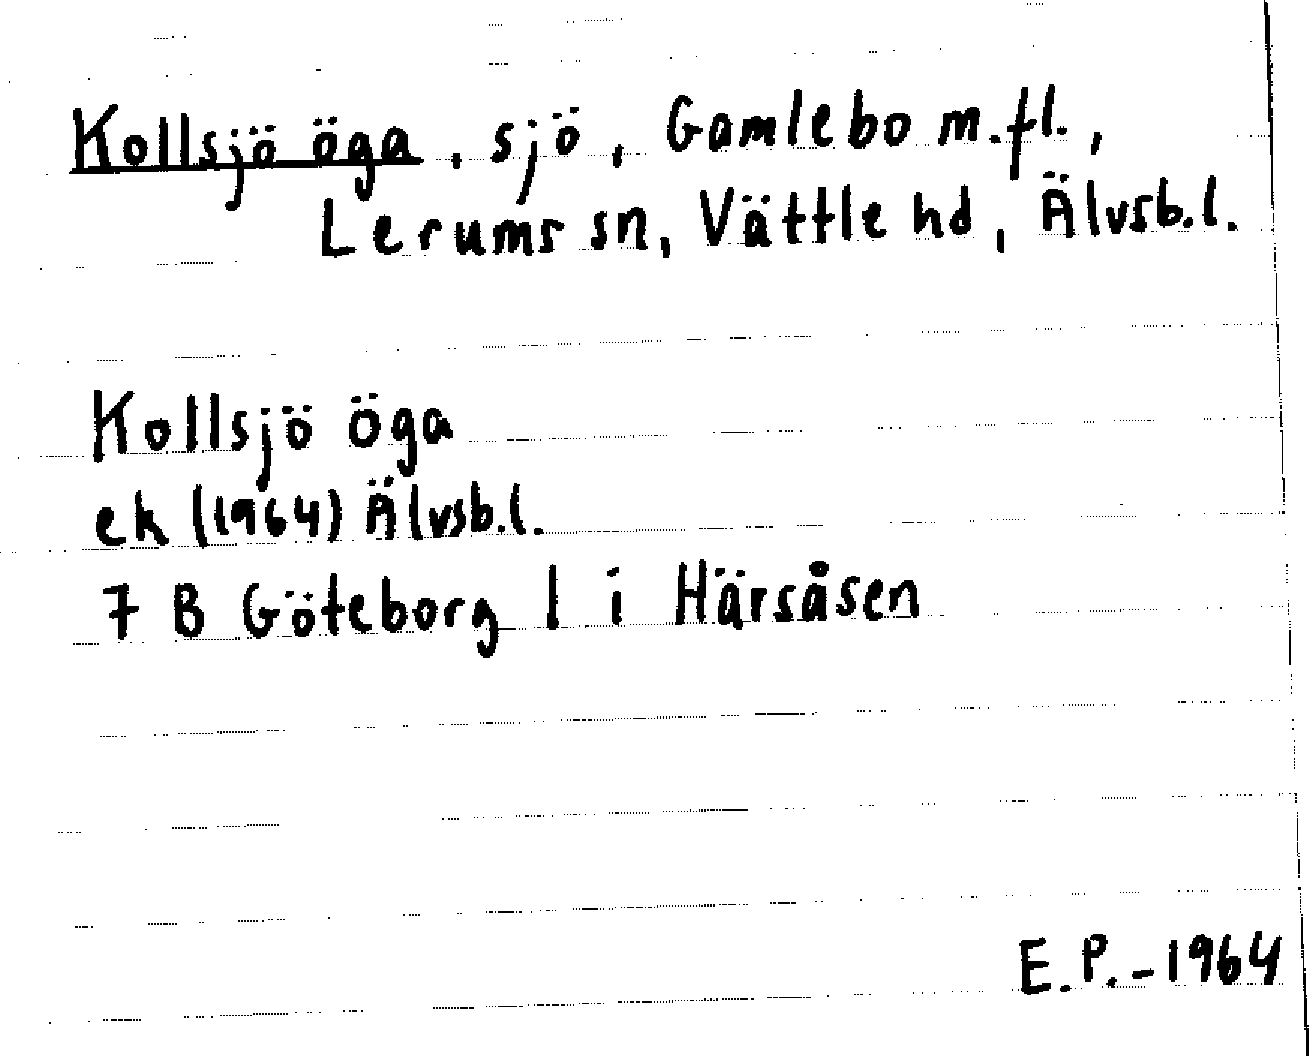 Kollsjö öga, sjö, Gamlebo m.fl.,
Lerums sn, Vättle hd, Älvsb.l.
Kollsjö öga
ek (1964) Älvsb.l.
7 B Göteborg 1 i Härsåsen
E.P.-1964